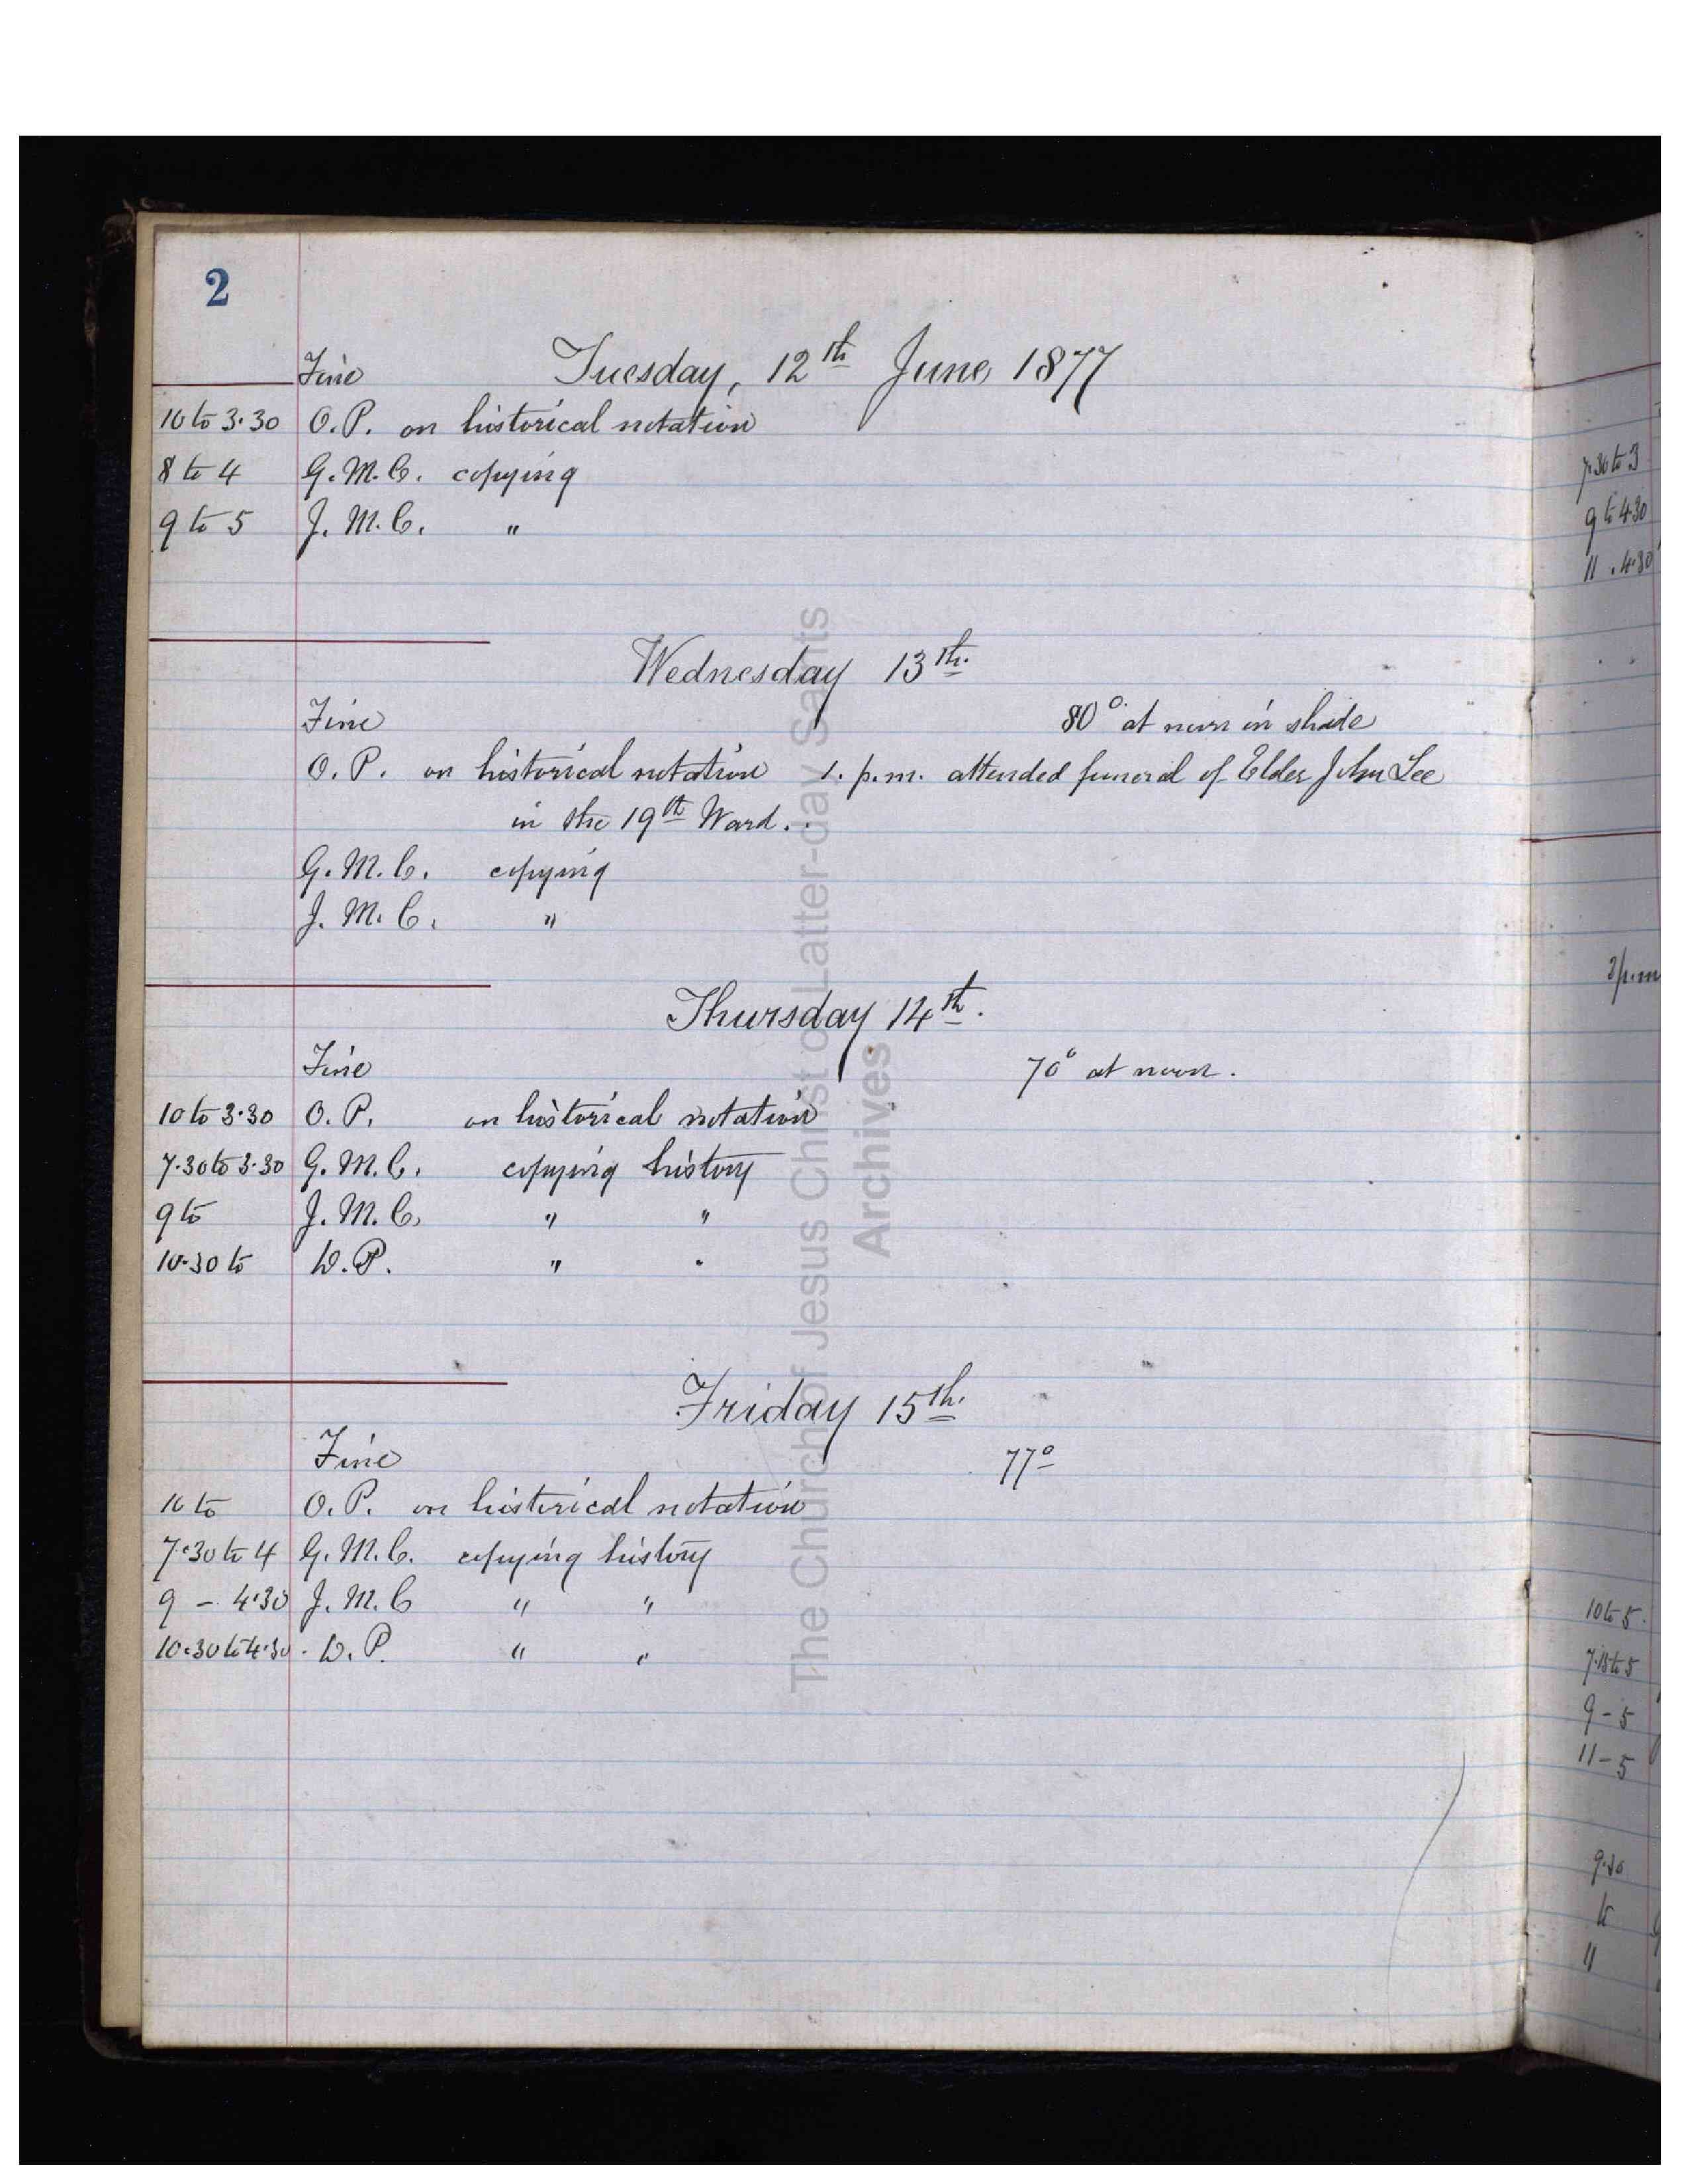 2
Fine Tuesday, 12th June 1877
10 to 3.30 O.P. on historical notation
8 to 4 G.M.C. copying
9 to 5 J.M.C. "
Wednesday 13th.
Fine 80° at noon in shade
O.P. on historical notation 1. p.m. attended funeral of Elder John Lee
in the 19th Ward.
G.M.C. copying
J.M.C. "
Thursday 14th.
Fine 70° at noon.
10 to 3.30 O.P. on historical notation
7.30 to 3.30 G.M.C. copying history
9 to J.M.C. " "
10.30 to D.P. " "
Friday 15th.
Fine 77°
10 to O.P. on historical notation
7.30 to 4 G.M.C. copying history
9 - 4.30 J.M.C " "
10.30 to 4.30 D.P. " "
7.30 to 3
9 to 4.30
11 . 4.30
3 p.m
10 to 5.
7.15 to 5
9 - 5
11 - 5
9.30
to
11
The Church of Jesus Christ of Latter-day Saints
Archives